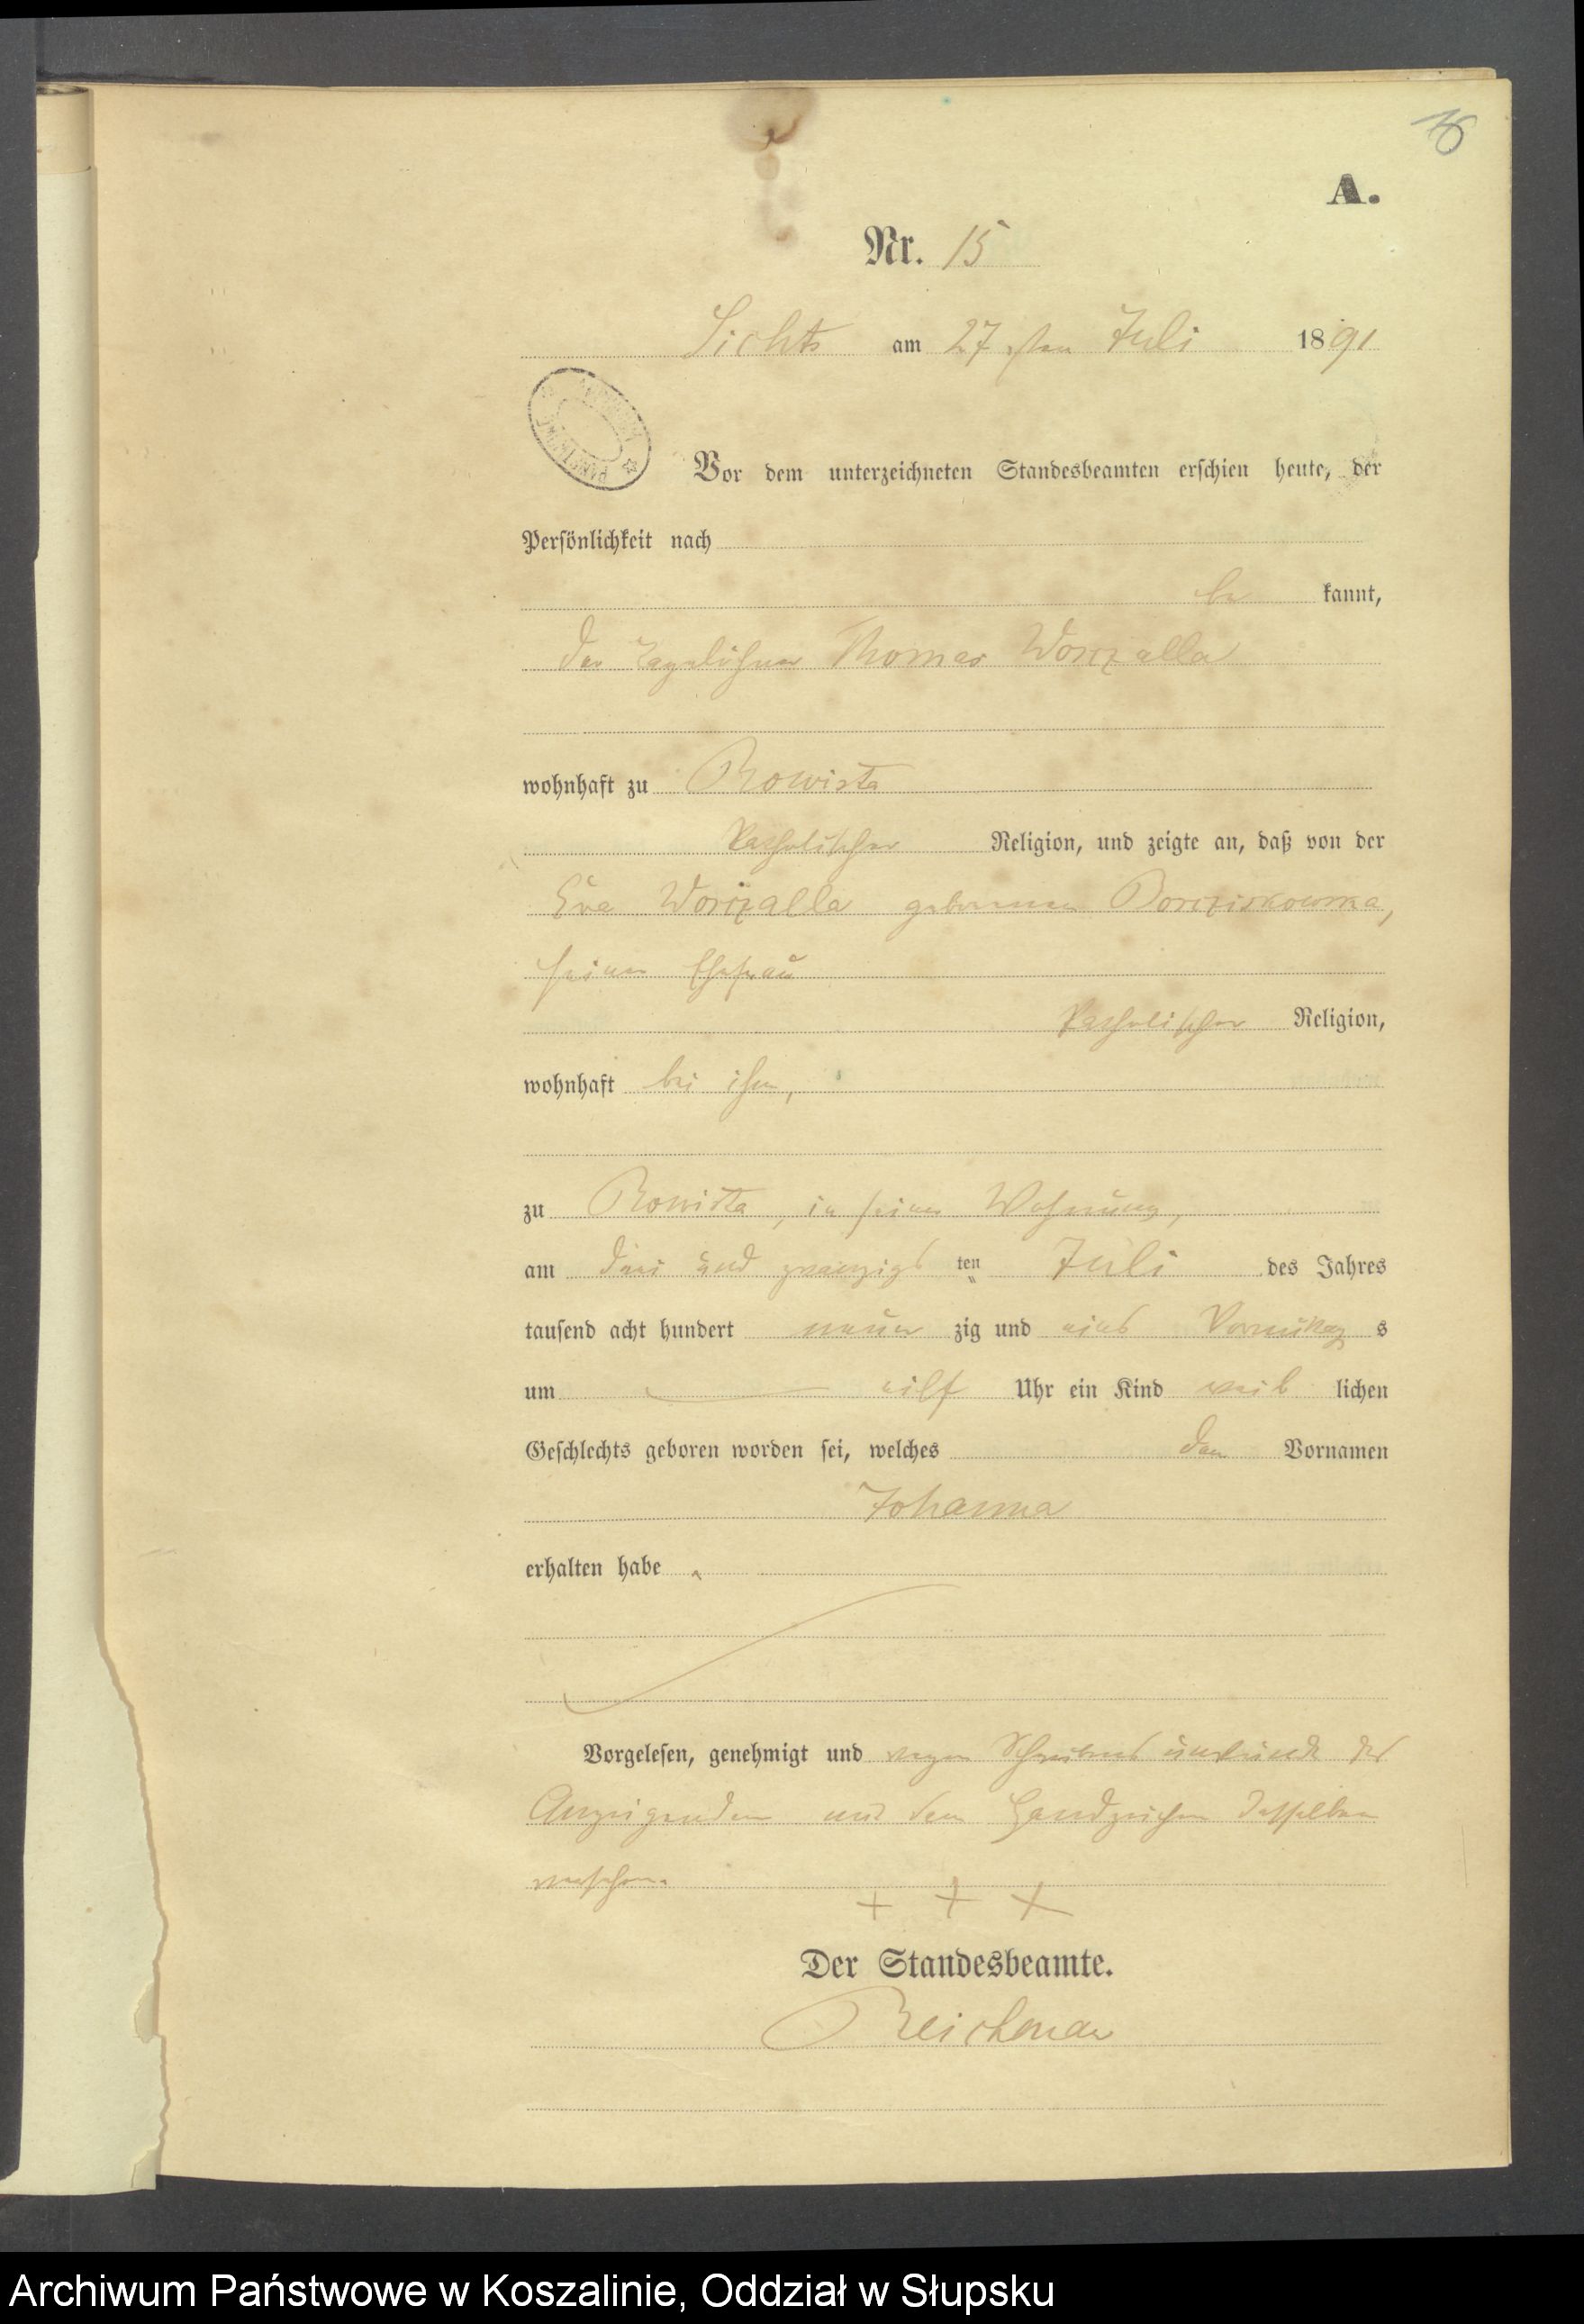 A.
Nr. 15
Lichts am 27 sten Juli 1891
Vor dem unterzeichneten Standesbeamten erschien heute, der
Persönlichkeit nach
be kannt,
der Tagelöhner Thomas Worczalla
wohnhaft zu Rowista
katholischer Religion, und zeigte an, daß von der
Eva Worczalla geborenen
seiner Ehefrau
katholischer Religion,
wohnhaft bei ihm,
zu Rowista, in seiner Wohnung,
am drei und zwanzigs ten Juli des Jahres
tausend acht hundert neun zig und eins Vormittag s
um eilf Uhr ein Kind weib lichen
Geschlechts geboren worden sei, welches den Vornamen
Johanna
erhalten habe.
Vorgelesen, genehmigt und wegen Schreibens unkunde des
Anzeigenden mit dem Handzeichen desselben
versehen.
+ + +
Der Standesbeamte.
Archiwum Państwowe w Koszalinie, Oddział w Słupsku